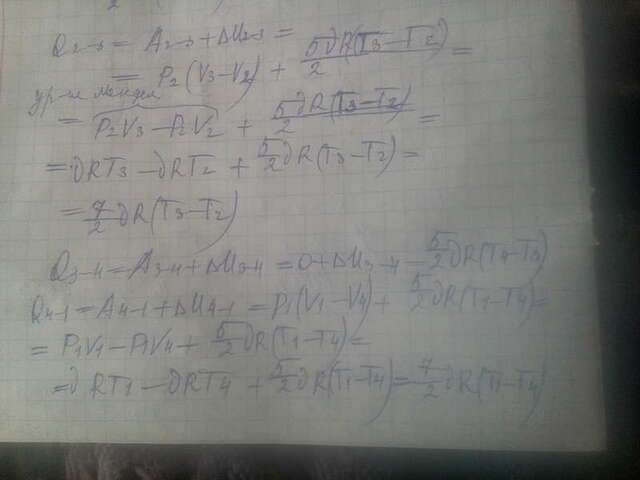 Q₂₋₃ = A₂₋₃ + ΔU₂₋₃ =
= P₂(V₃ − V₂) + 5/2 ∂R(T₃ − T₂) =
ур-е Менде
= P₂V₃ − P₂V₂ + 5/2 ∂R(T₃ − T₂) =
= ∂RT₃ − ∂RT₂ + 5/2 ∂R(T₃ − T₂) =
= 7/2 ∂R(T₃ − T₂)
Q₃₋₄ = A₃₋₄ + ΔU₃₋₄ = 0 + ΔU₃₋₄ = 5/2 ∂R(T₄ − T₃)
Q₄₋₁ = A₄₋₁ + ΔU₄₋₁ = P₁(V₁ − V₄) + 5/2 ∂R(T₁ − T₄) =
= P₁V₁ − P₁V₄ + 5/2 ∂R(T₁ − T₄) =
= ∂RT₁ − ∂RT₄ + 5/2 ∂R(T₁ − T₄) = 7/2 ∂R(T₁ − T₄)